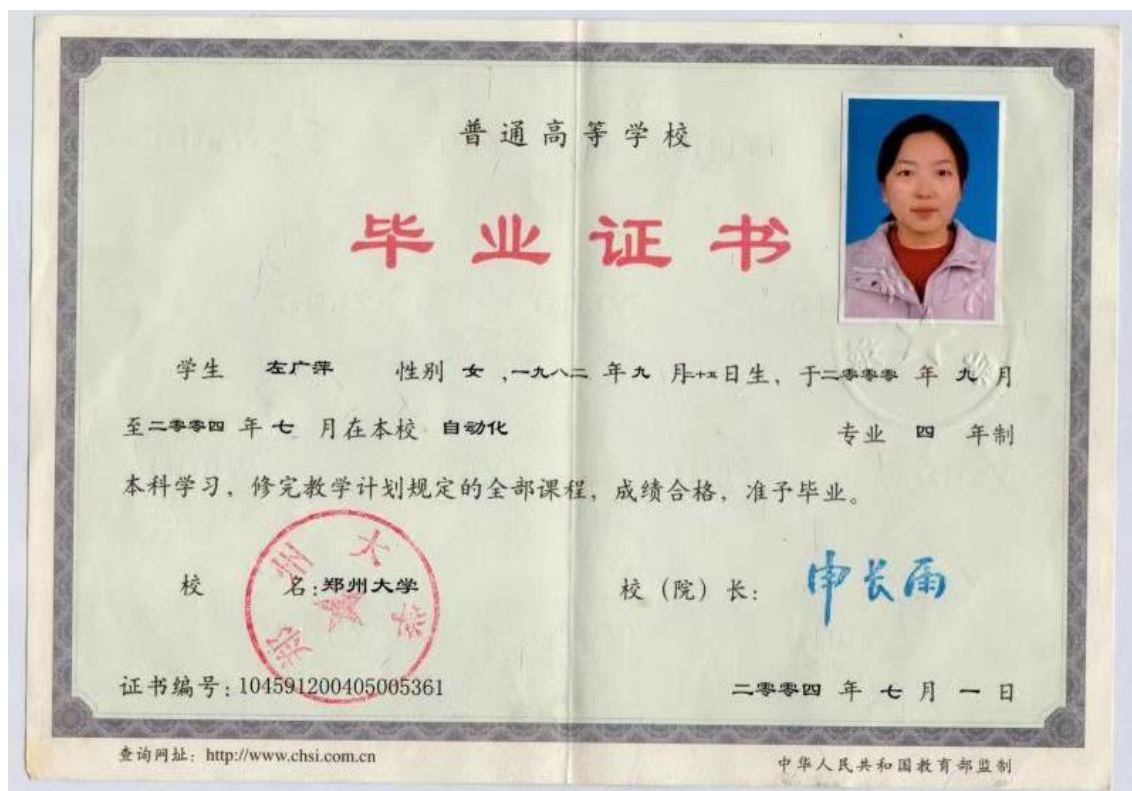 普通高等学校
毕业证书
学生 左广萍 性别 女 ,一九八二 年 九 月 十五 日生，于 二零零零 年 九 月
至 二零零四 年 七 月在本校 自动化 专业 四 年制
本科学习，修完教学计划规定的全部课程，成绩合格，准予毕业。
郑州大学
校 名:郑州大学 校（院）长: 申长雨
证书编号: 104591200405005361 二零零四 年 七 月 一 日
查询网址: http://www.chsi.com.cn 中华人民共和国教育部监制